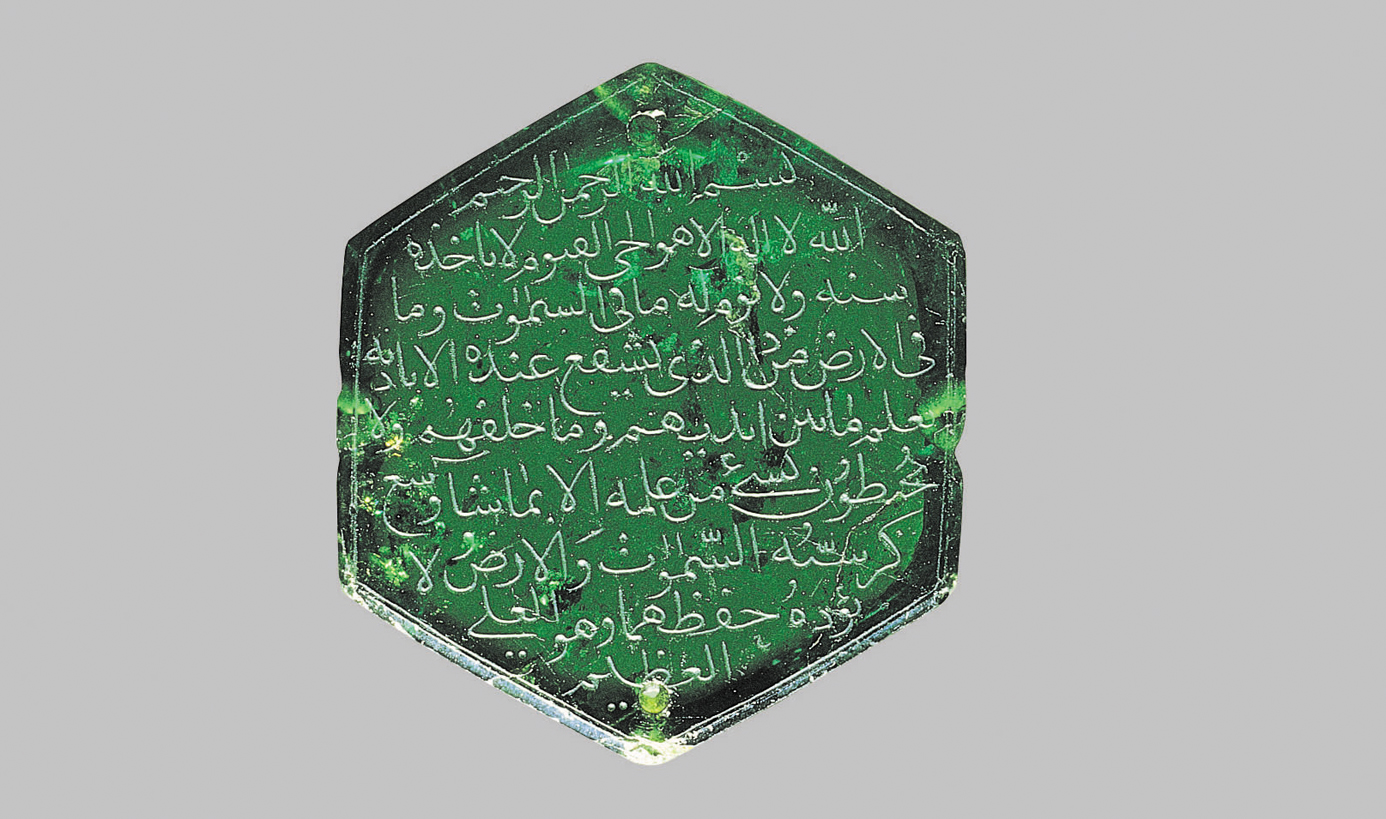 بسم الله الرحمن الرحيم
الله لا اله الا هو الحى القيوم لا تاخذه
سنه ولا نوم له ما فى السموات وما
فى الارض من ذا الذى يشفع عنده الا باذنه
يعلم ما بين ايديهم وما خلفهم ولا
يحيطون بشىء من علمه الا بما شا وسع
كرسيه السموات والارض ولا
يؤده حفظهما وهو العلي
العظيم